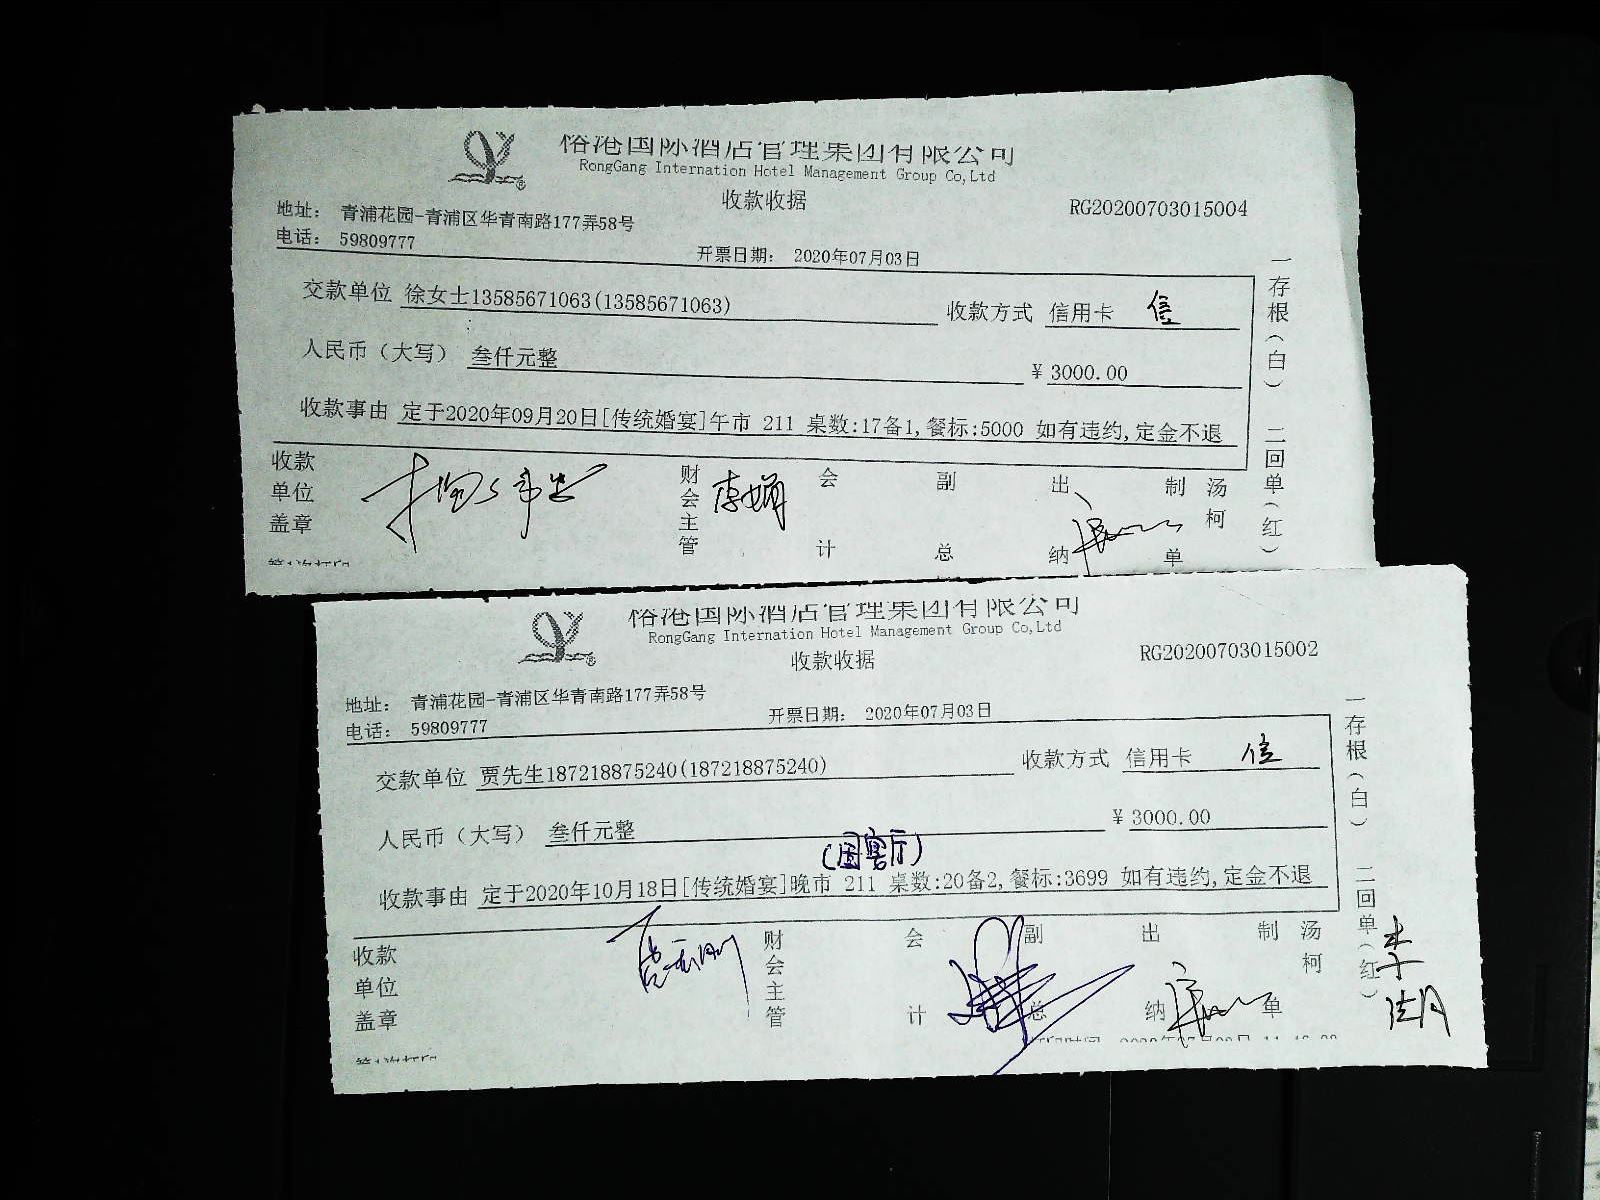 裕港国际酒店管理集团有限公司
RongGang Internation Hotel Management Group Co,Ltd
收款收据
RG20200703015004
地址： 青浦花园-青浦区华青南路177弄58号
电话： 59809777
开票日期： 2020年07月03日
交款单位 徐女士13585671063(13585671063) 收款方式 信用卡 信
人民币（大写） 叁仟元整 ¥ 3000.00
收款事由 定于2020年09月20日[传统婚宴]午市 211 桌数:17备1,餐标:5000 如有违约,定金不退
收款单位盖章 财会主管 李娟 会计 副总 出纳 制单 汤柯
一存根（白） 二回单（红）
第1次打印
裕港国际酒店管理集团有限公司
RongGang Internation Hotel Management Group Co,Ltd
收款收据
RG20200703015002
地址： 青浦花园-青浦区华青南路177弄58号
电话： 59809777
开票日期： 2020年07月03日
交款单位 贾先生187218875240(187218875240) 收款方式 信用卡 信
人民币（大写） 叁仟元整 ¥ 3000.00
(国宴厅)
收款事由 定于2020年10月18日[传统婚宴]晚市 211 桌数:20备2,餐标:3699 如有违约,定金不退
收款单位盖章 财会主管 会计 副总 出纳 制单 汤柯
一存根（白） 二回单（红）
第1次打印